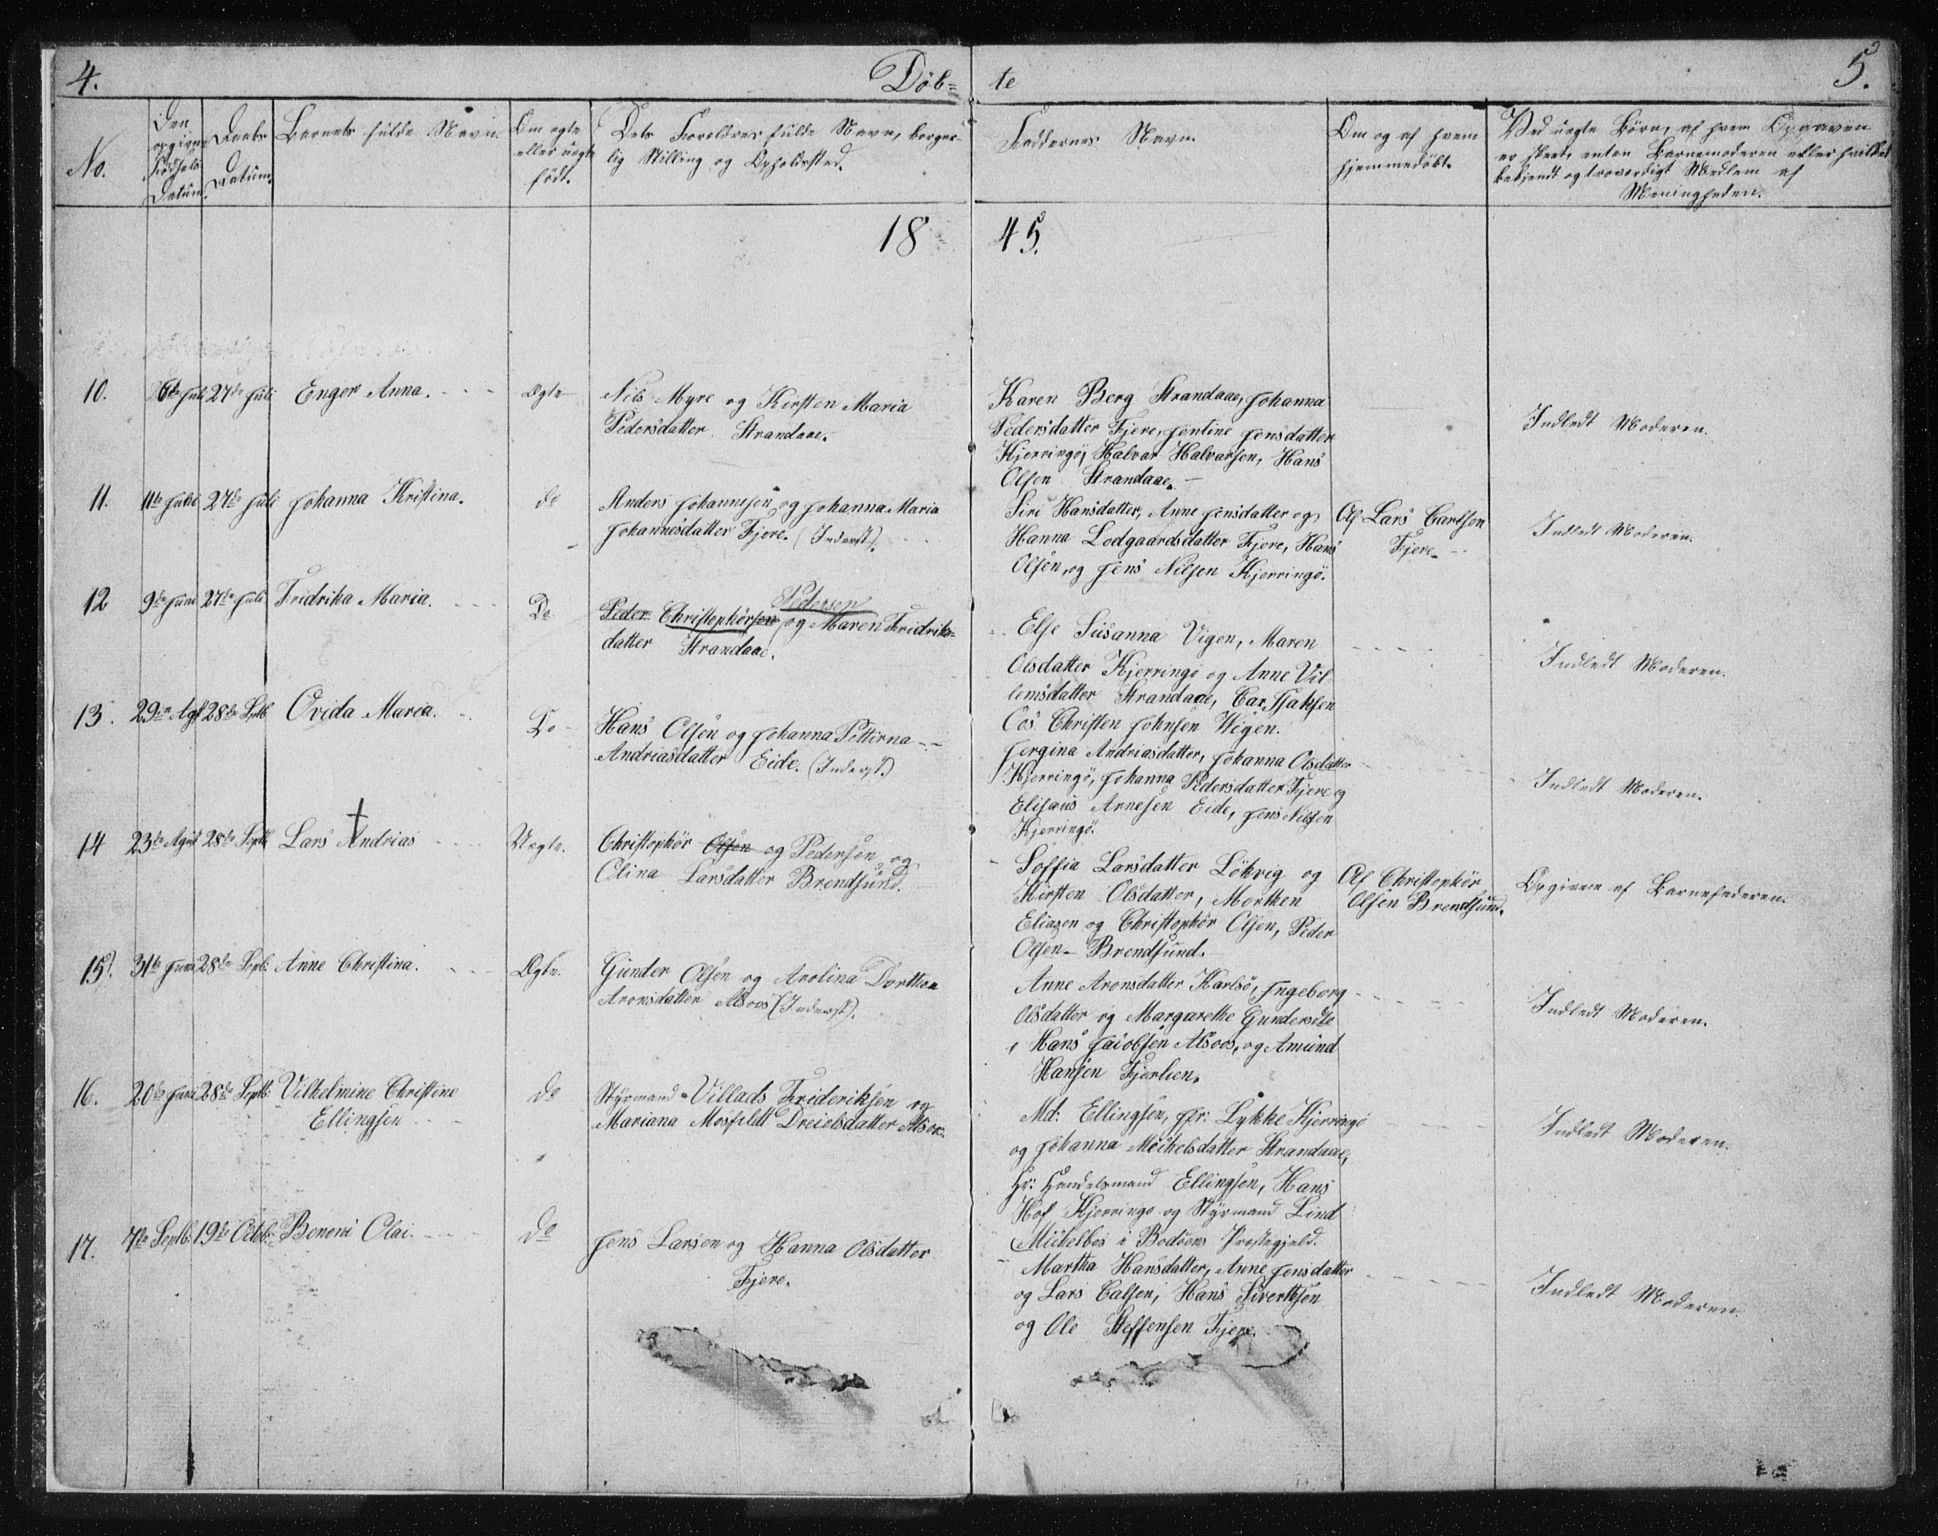 4. Döb= te 5.
No.
Den opgivne Födsels Datum.
Daabs Datum.
Barnets fulde Navn.
Om ægte eller uægte född.
Dets Foreldres fulde Navn, borger-
lig Stilling og Opholdssted.
Faddernes Navn.
Om og af hvem
hjemmedöbt.
Ved uegte Börn, af hvem Opgaven
er skeet, enten Barnemoderen eller hvilket
bekjendt og troværdigt Medlem af
Menigheden.
18 45.
10. 6te Juli 27de Juli Enger Anna. Ægte
Nils Myre og Kirsten Maria
Pedersdatter Strandaae.
Karen Berg Strandaae, Johanna
Pedersdatter Fjere, Jentine Jensdatter
Kjerringö, Halvar Halvarsen, Hans
Olsen Strandaae.
Indledt Moderen.
11. 11te Juli 27de Juli Johanna Kristina. do
Anders Johannesen og Johanna Maria
Johannesdatter Fjere. (Inderst).
Siri Hansdatter, Anne Jensdatter og
Hanna Lodgaardsdatter Fjere, Hans
Olsen, og Jens Nilsen Kjerringö.
Af Lars Carlsen
Fjere.
Indledt Moderen.
12 9de Juni 27de Juli Fridrika Maria. Do
Pedersen
Peder Christophörsen og Maren Fridriks-
datter Strandaae.
Else Susanna Vigen, Maren
Olsdatter Kjerringö og Anne Vil-
lemsdatter Strandaae, Car Isaksen
Oos Christen Johnsen Wigen.
Indledt Moderen.
13. 29de Agst 28de Septb Ovida Maria. Do
Hans Olsen og Johanna Pettirna
Andriasdatter Eide. (Inderst.)
Jergina Andriasdatter, Johanna Olsdatter
Kjerringö, Johanna Pedersdatter Fjere og
Elisæus Arnesen Eide, Jens Nilsen
Kjerringö.
Indledt Moderen.
14 23de Agust 28de Septb Lars Andrias Uegte.
Christophör Olsen og Pedersen og
Olina Larsdatter Brendsund.
Soffia Larsdatter Lökvig og
Kirsten Olsdatter, Morthen
Eliazen og Christophör Olsen, Peder
Olsen Brendsund.
Af Christophör
Olsen Brendsund.
Opgiven af Barnefaderen.
15. 31te Juni 28de Septb: Anne Christina. Ægte.
Gunder Olsen og Arolina Dorthea
Aronsdatter Alsoos (Inderst).
Anne Aronsdatter Karlsö, Ingeborg
Olsdatter og Margarethe Gundersdte
, Hans Jacobsen Alsoos, og Amund
Hansen Fjerlien.
Indledt Moderen.
16. 20de Juni 28de Septb: Vilhelmine Christine
Ellingsen do
Styrmand Villads Frideriksen og
Mariana Mosfeldt Dreiersdatter Alsoos.
Md: Ellingsen, Jfr: Lykke Kjerringö
og Johanna Michelsdatter Strandaae,
Hr. Handelsmand Ellingsen, Hans
Hof Kjerringö og Styrmand Lind
Mickelbos i Bodöens Prestegjeld.
Indledt Moderen.
17. 7de Septb: 19de Octob: Benoni Olai. do
Jens Larsen og Hanna Olsdatter
Fjere.
Martha Hansdatter, Anne Jensdatter
og Lars Calsen, Hans Sivertsen
og Ole Steffensen Fjere.
Indledt Moderen.